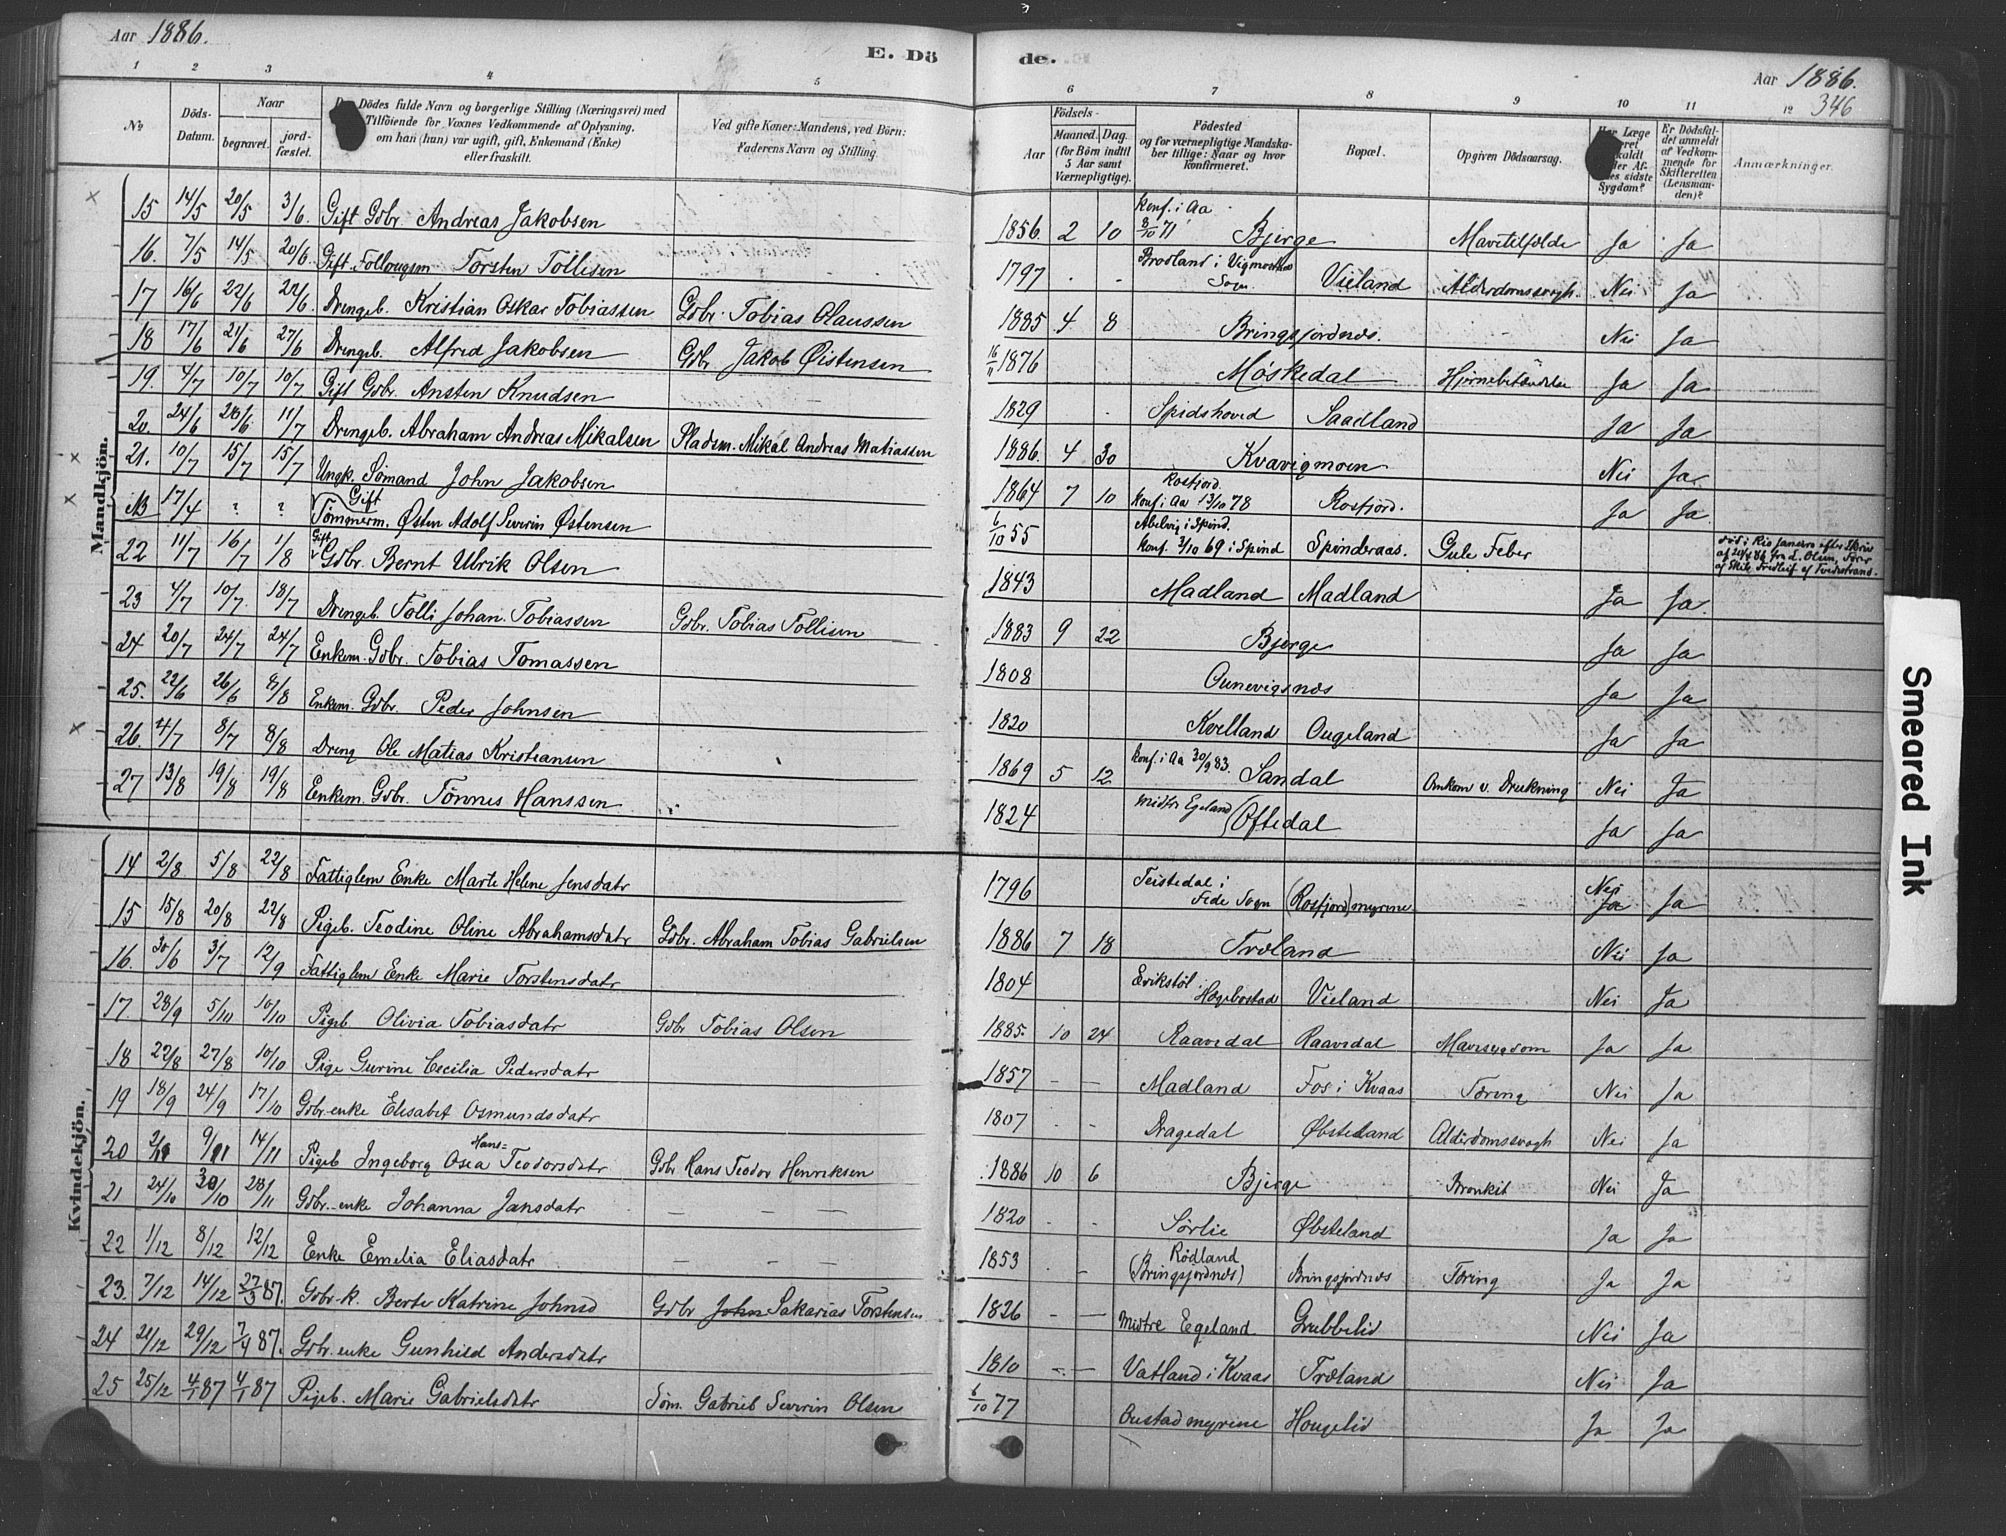 Aar 1886.
E. Dö
de.
Aar 1886.
346
1 2 3 4 5
6 7 8 9 10 11 12
No
Döds-Datum.
Naar
begravet.
jord-fæstet.
Dödes fulde Navn og borgerlige Stilling (Næringsvei) med
Tilföiende for Voxnes Vedkommende af Oplysning,
om han (hun) var ugift, gift, Enkemand (Enke)
eller fraskilt.
Ved gifte Koner: Mandens, ved Börn:
Faderens Navn og Stilling.
Födsels-
Aar
Maaned. Dag.
(for Börn indtil
5 Aar samt
Værnepligtige).
Födested
og for værnepligtige Mandska-
ber tillige: Naar og hvor
konfirmeret.
Bopæl.
Opgiven Dödsaarsag.
Læge
sidste
Sygdom?
Er Dödsfal-
det anmeldt
af Vedkom-
mende for
Skifteretten
(Lensman-
den)?
Anmærkninger.
Mandkjön.
15 14/5 20/5 3/6. Gift Gdbr. Andreas Jakobsen 1856. 2 10 konf. i Aa 8/10 71 Bjerge Ja Ja
16. 7/5 14/5 20/6 Gift Torsten Tollisen 1797 - - Vigmostad Sogn Vieland Alderdomssvagh. Nei Ja
17 16/6 22/6 22/6. Drengeb. Kristian Oskar Tobiassen Gdbr. Tobias Olaussen 1885 4 8 Bringsfjordnes. Nei Ja
18 17/6 21/6 27/6 Drengeb. Alfred Jakobsen Gdbr Jakob Øistensen 16/11 1876 Møskedal Hjernebetændelse Ja Ja
19. 4/7 10/7 10/7 Gift Gdbr. Ansten Knudsen 1829 Spidshoved Saadland Ja Ja
20 24/6 28/6. 11/7 Drengeb. Abraham Andreas Mikalsen Pladsm. Mikal Andreas Matiassen 1886. 4 30 Kvavigmoen Nei Ja.
21. 10/7 15/7 15/7 Ungk. Sømand John Jakobsen 1864 7 10 Rosfjord. konf. i Aa 13/10 78 Rosfjord. Ja Ja.
NB 17/4 ? ? Gift Tømmerm. Østen Adolf Severin Østensen 6/10 55 Abelvig i Spind. konf. 3/10 69 i Spind Spinderaas. Gule Feber død i Rio Janeiro efter Skriv af 20/4 86 fra L. Olsen, Fører af Skib Fridleif af Tvedestrand.
22 11/7 16/7 1/8 Gift Gdbr. Bernt Ulrik Olsen 1843 Madland Madland Ja Ja.
23 4/7 10/7. 18/7 Drengeb. Tolli Johan Tobiassen Gdbr. Tobias Tollisen 1883 9 22 Bjerge Ja Ja
24 20/7 24/7 24/7 Enkem. Gdbr. Tobias Tomassen 1808 Ounevigsnes Ja Ja
25. 22/6 26/6 8/8 Enkem. Gdbr. Peder Johnsen 1820 Kvelland Ougeland Ja Ja
26. 4/7 8/7 8/8 Dreng Ole Matias Kristiansen 1869 5 12 konf. i Aa 30/9 83. Sandal Omkom v. Drukning Nei Ja
27 13/8 19/8 19/8 Enkem. Gdbr. Tønnes Hanssen 1824 Midtre Egeland (Oftedal Ja Ja
Kvindekjön.
14 2/8 5/8 22/8 Fattiglem Enke Marte Helene Jensdatr 1796 Teistedal i Fede Sogn (Rosfjord) myrene Nei Ja Ja
15 15/8 20/8 22/8 Pigeb. Teodine Oline Abrahamsdatr Gdbr. Abraham Tobias Gabrielsen 1886 7 18 Træland Nei Ja
16. 30/6 3/7 12/9 Fattiglem Enke Marie Torstensdatr 1804 Erikstøl Hægebostad Vieland Nei Ja
17. 28/9 5/10 10/10 Pigeb Olivia Tobiasdatr Gdbr Tobias Olsen 1885. 10 24 Raavedal Raavedal Mavesygdom Ja Ja
18 22/8 27/8 10/10 Pige Gurine Cecilia Pedersdatr 1857 - - Madland Fos i Kvaas Tæring Nei Ja
19 18/9 24/9 17/10 Gdbr-enke Elisabet Osmundsdatr 1807 - - Dragedal Øbsteland Alderdomssvagh Nei Ja
20 9/11 14/11 Pigeb Ingeborg Osea Hans= Teodorsdatr Gdbr Hans Teodor Henriksen 1886 10 6 Bjerge Bronkit Nei Ja
21 24/10 30/10 28/11 Gdbr.-enke Johanna Jansdatr — — — 1820 - - Sørlie Øbsteland Ja Ja
22 1/12 8/12 12/12 Enke Emelia Eliasdatr — — — 1853 - - Rødland (Bringsfjordnes) Bringsfjordnes Tæring Ja Ja
23. 7/12 14/12 27/3 87. Gdbr-k. Berte Katrine Johnsd Gdbr John Sakarias Torstensen 1826 - — Midtre Egeland Grubbelid Nei Ja
24 21/12 29/12 7/4 87. Gdbr-enke Gunhild Andersdatr 1810 - - Vatland i Kvaas Træland Nei Ja
25 25/12 4/1 87 4/1 87 Pigeb. Marie Gabrielsdatr Søm. Gabriel Severin Olsen 6/10 77 Oustadmyrene Hougelid Ja Ja
Smeared Ink